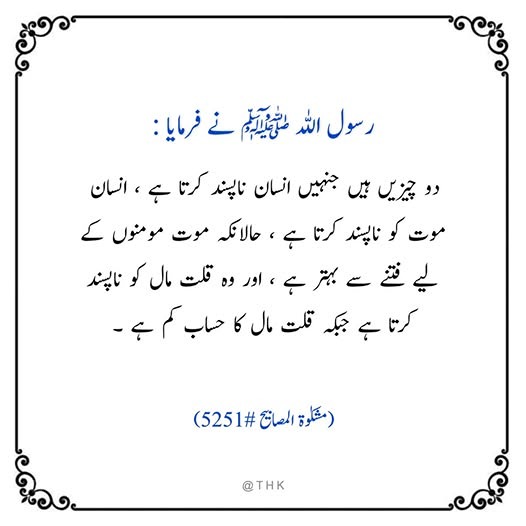 رسول اللہ ﷺ نے فرمایا :
دو چیزیں ہیں جنہیں انسان ناپسند کرتا ہے ، انسان
موت کو ناپسند کرتا ہے ، حالانکہ موت مومنوں کے
لیے فتنے سے بہتر ہے ، اور وہ قلت مال کو ناپسند
کرتا ہے جبکہ قلت مال کا حساب کم ہے ۔
(مشکوٰۃ المصابیح #5251)
@THK